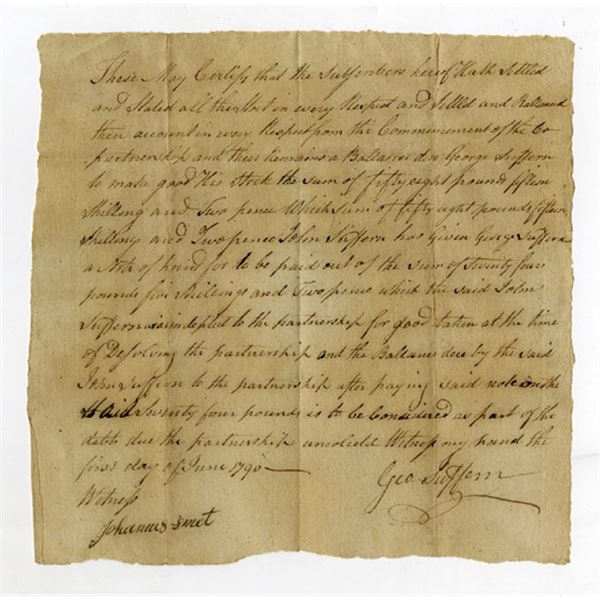 These May Certify that the Subscribers hereof Hath Settled
and Stated all the in every Respect and Settled and Ballanced
their account in every Respect from the Commencement of the Co
partnership and their Remains a Ballance due George Suffern
to make good His Stock the sum of fifty eight pounds fifteen
Shilling and Two pence Which sum of fifty eight pounds fifteen
Shillings and Two pence John Suffern has Given George Suffern
a Note of hand for to be paid out of the sum of seventy four
pounds five Shillings and Two pence which the said John
Suffern is indepted to the partnership for good taken at the time
of Desolving the partnership and the Ballance due by the said
John Suffern to the partnership after paying said note on the
Said Seventy four pounds is to be Considered as part of the
debts due the partnership Witness my hand the
first day of June 1790
Geo. Suffern
Witness
Johannes Smet